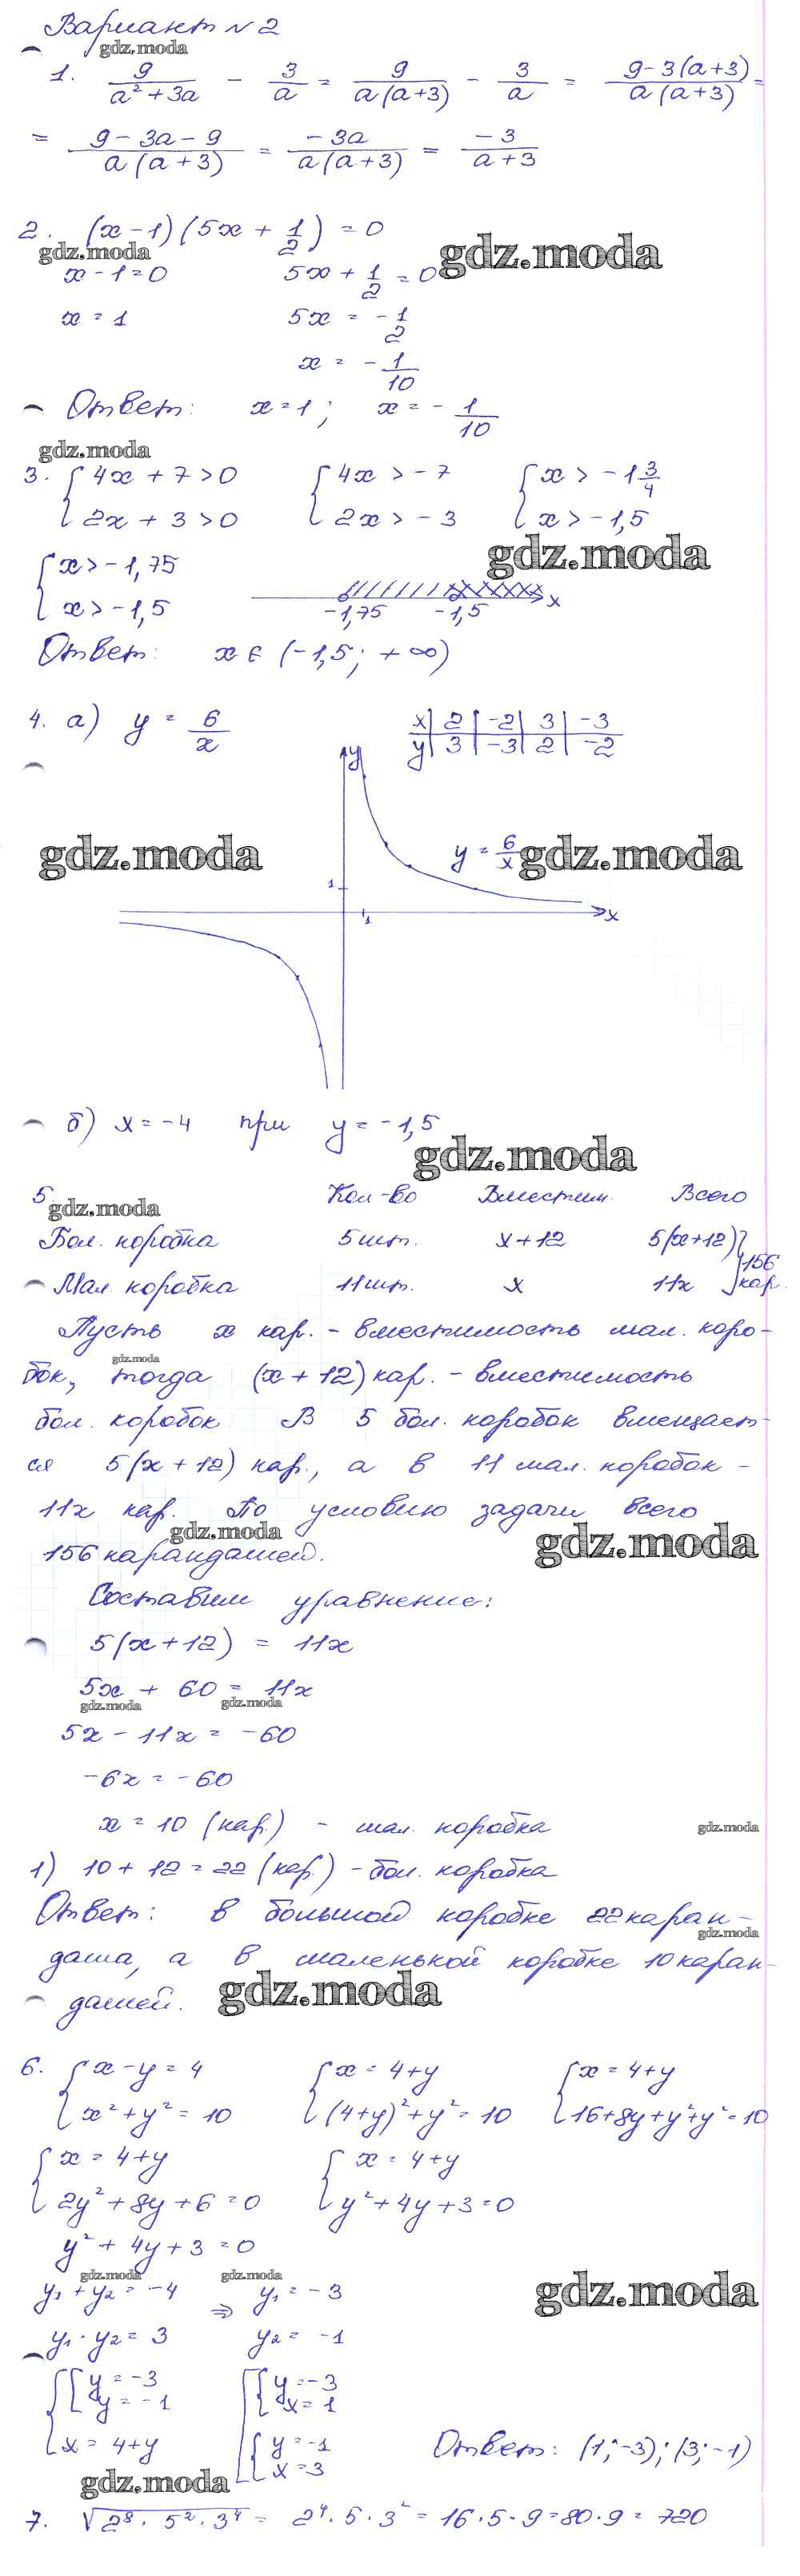 Вариант №2
gdz.moda
1. 9/(a²+3a) - 3/a = 9/(a(a+3)) - 3/a = (9-3(a+3))/(a(a+3)) =
= (9-3a-9)/(a(a+3)) = (-3a)/(a(a+3)) = (-3)/(a+3)
2. (x-1)(5x + 1/2) = 0
gdz.moda gdz.moda
x-1=0 5x + 1/2 = 0
x = 1 5x = -1/2
x = -1/10
Ответ: x=1; x=-1/10
gdz.moda
3. { 4x+7>0 { 4x>-7 { x>-1 3/4
{ 2x+3>0 { 2x>-3 { x>-1,5
gdz.moda
{ x>-1,75
{ x>-1,5 -1,75 -1,5 x
Ответ: x ∈ (-1,5; +∞)
4. а) y = 6/x x | 2 | -2 | 3 | -3
y | 3 | -3 | 2 | -2
y
gdz.moda y = 6/x gdz.moda
1
1 x
б) x=-4 при y=-1,5
gdz.moda
5 Кол-во Вместим. Всего
gdz.moda
Бол. коробка 5шт. x+12 5(x+12) } 156
Мал. коробка 11шт. x 11x } кар.
Пусть x кар. - вместимость мал. коро-
gdz.moda
бок, тогда (x+12) кар. - вместимость
бол. коробок. В 5 бол. коробок вмещает-
ся 5(x+12) кар., а в 11 мал. коробок -
11x кар. По условию задачи всего
gdz.moda gdz.moda
156 карандашей.
Составим уравнение:
5(x+12) = 11x
5x + 60 = 11x
gdz.moda gdz.moda
5x - 11x = -60
-6x = -60
x = 10 (кар.) - мал. коробка
gdz.moda
1) 10 + 12 = 22 (кар.) - бол. коробка
Ответ: в большой коробке 22 каран-
gdz.moda
даша, а в маленькой коробке 10 каран-
дашей. gdz.moda
6. { x-y=4 { x=4+y { x=4+y
{ x²+y²=10 { (4+y)²+y²=10 { 16+8y+y²+y²=10
{ x=4+y { x=4+y
{ 2y²+8y+6=0 { y²+4y+3=0
y²+4y+3=0
gdz.moda gdz.moda gdz.moda
y₁+y₂=-4 ⇒ y₁=-3
y₁·y₂=3 y₂=-1
{ [ y=-3 [ { y=-3
{ [ y=-1 [ { x=1
{ x=4+y [ { y=-1 Ответ: (1;-3); (3;-1)
[ { x=3
gdz.moda
7. √(2⁸·5²·3⁴) = 2⁴·5·3² = 16·5·9=80·9=720